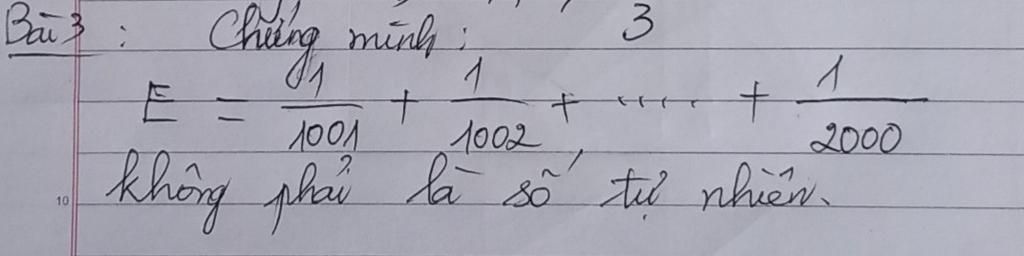 Bài 3 : Chứng minh : 3
E = 1/1001 + 1/1002 + ..... + 1/2000
không phải là số tự nhiên.
10